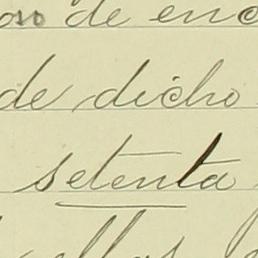 de enc
de dicho
setenta
ellas